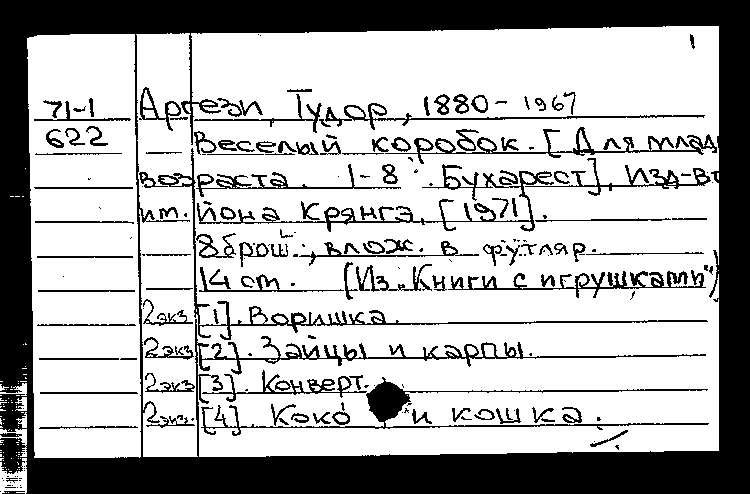 1
71-1 Аргези, Тудор, 1880-1967
622 Веселый коробок. [Для млад
возраста. 1-8. Бухарест], Изд-во
им. Йона Крянгэ, [1971].
8 брош., влож. в футляр.
14 cm. (Из "Книги с игрушками")
2экз [1]. Воришка.
2экз [2]. Зайцы и карпы.
2экз [3]. Конверт.
2экз. [4]. Коко и кошка.